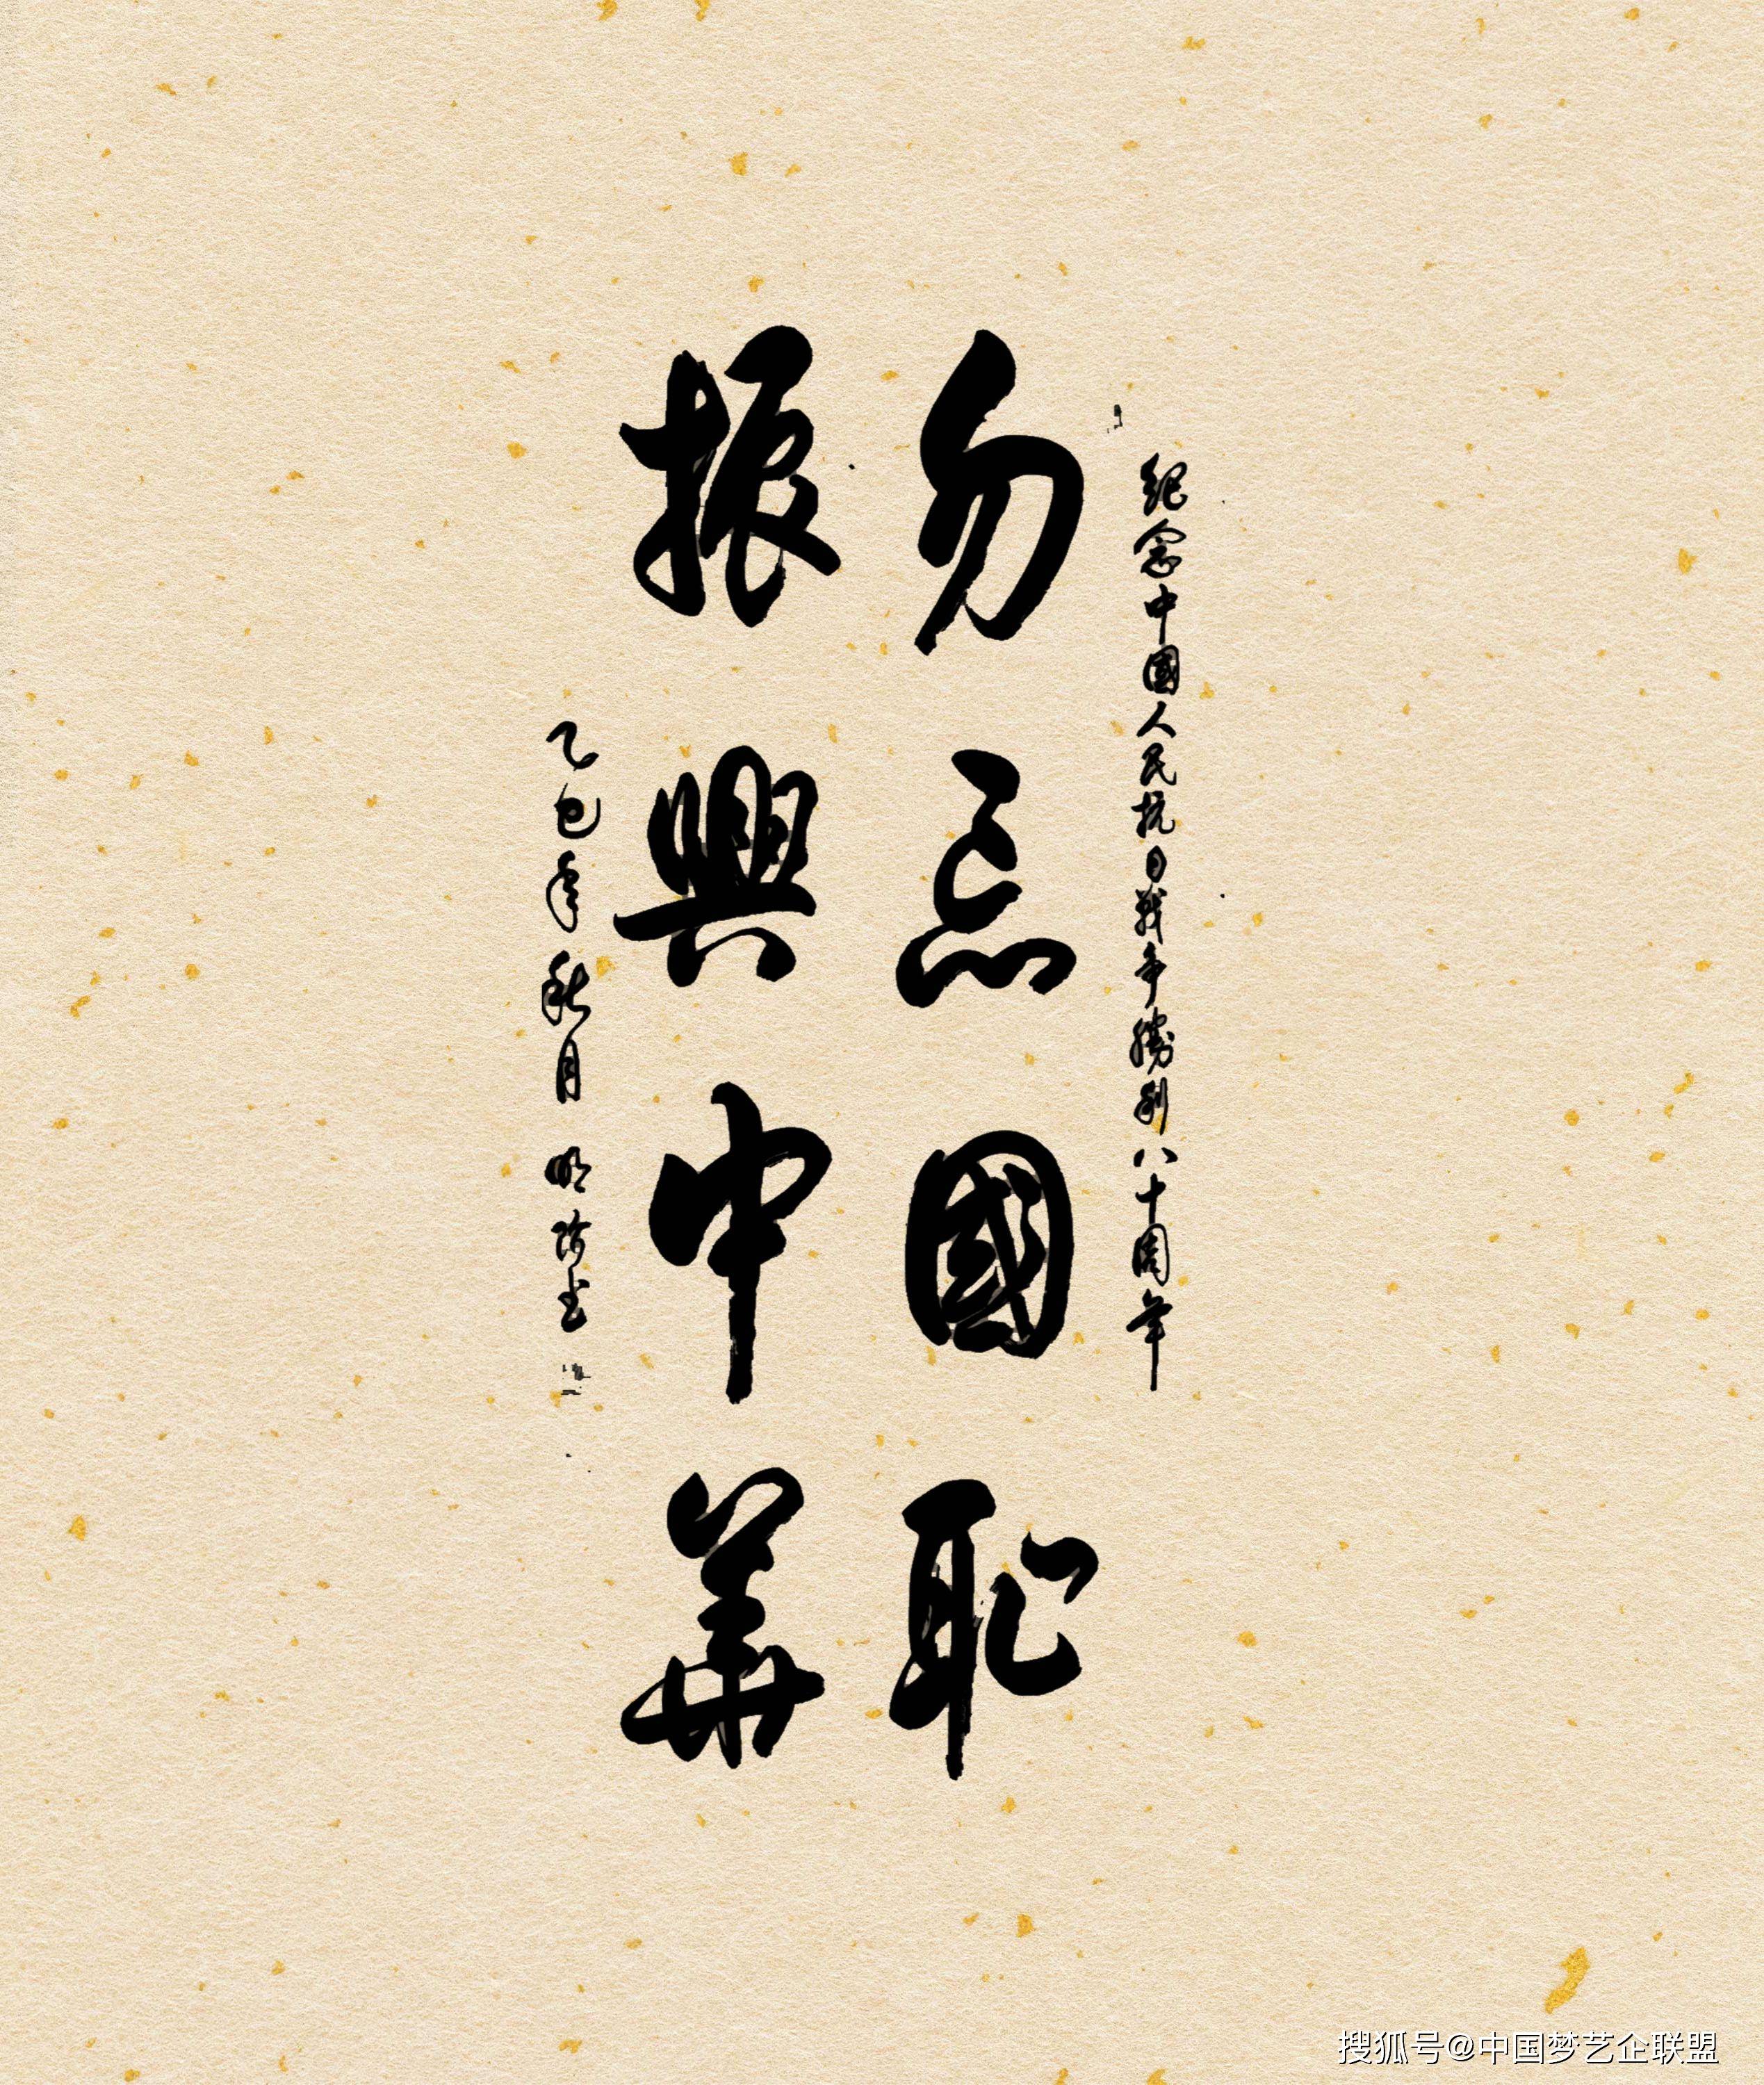 紀念中國人民抗日戰争勝利八十周年
勿忘國恥
振興中華
乙巳年秋月 明阶书
搜狐号@中国梦艺企联盟